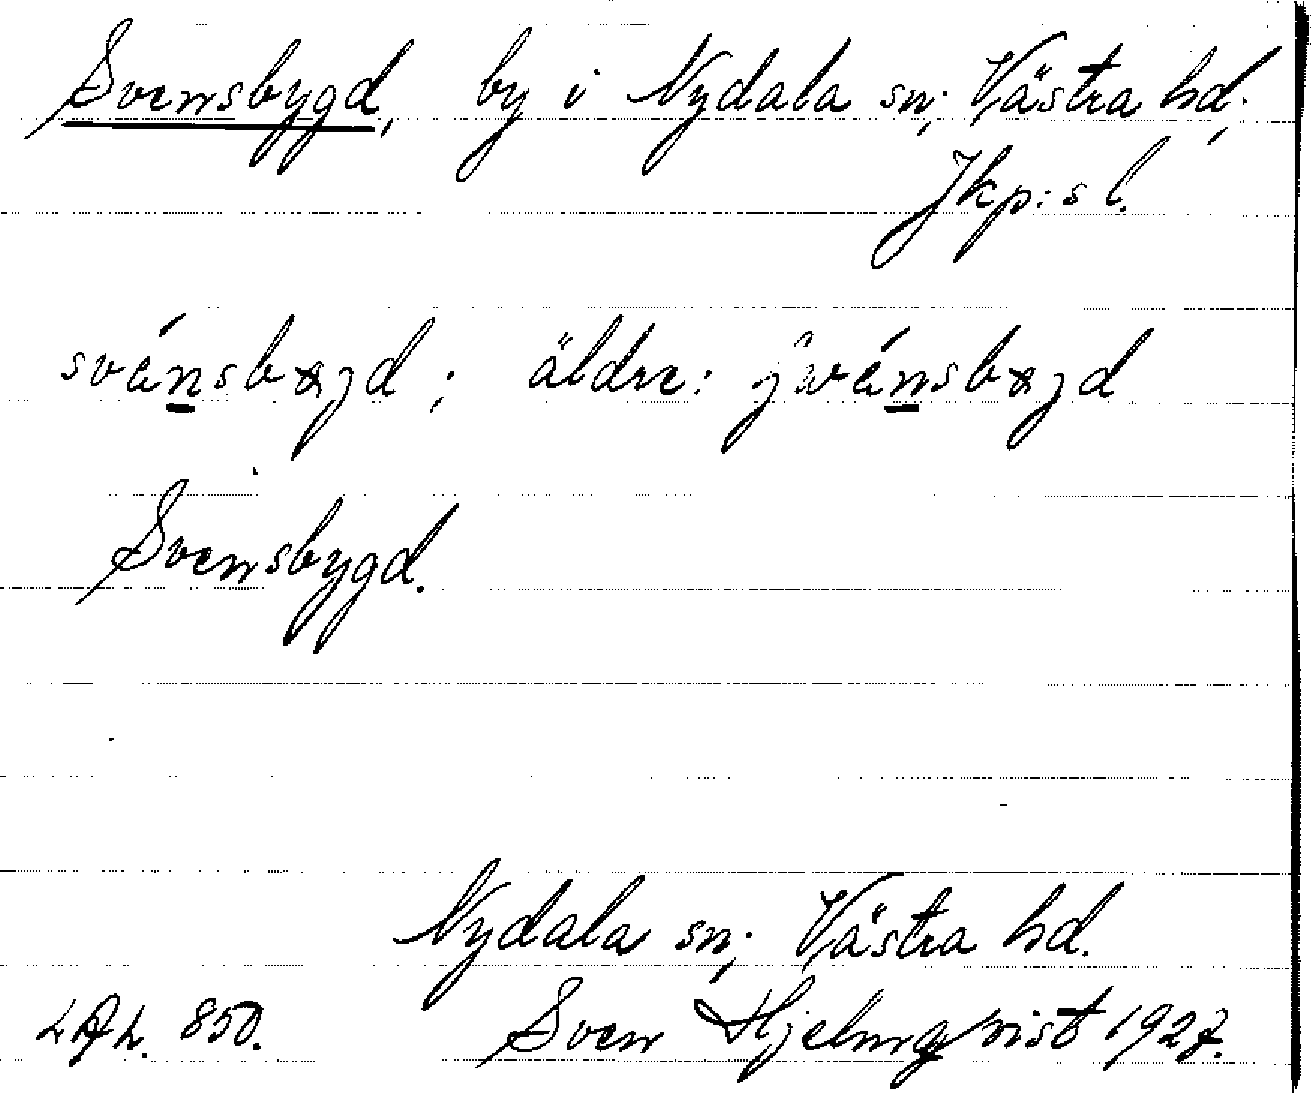 Svensbygd, by i Nydala sn; Västra hd;
Jkp:s l.
Svensbygd.
äldre:
Nydala sn; Västra hd.
850. Sven Hjelmqvist 1927.